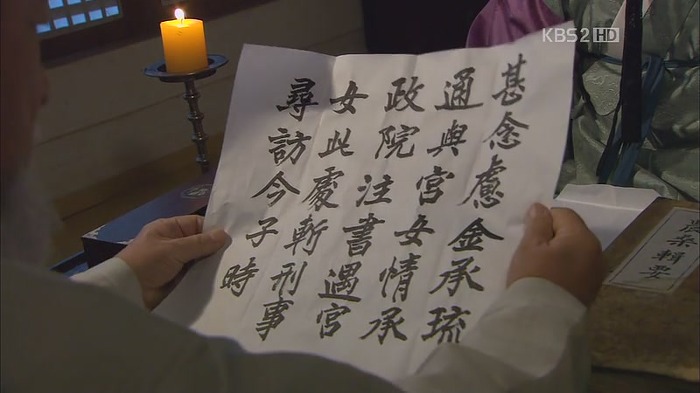 KBS2 HD
甚念慮金承琉
通與宮女情承
政院注書遇宮
女此處斬刑事
尋訪今子時
輯要